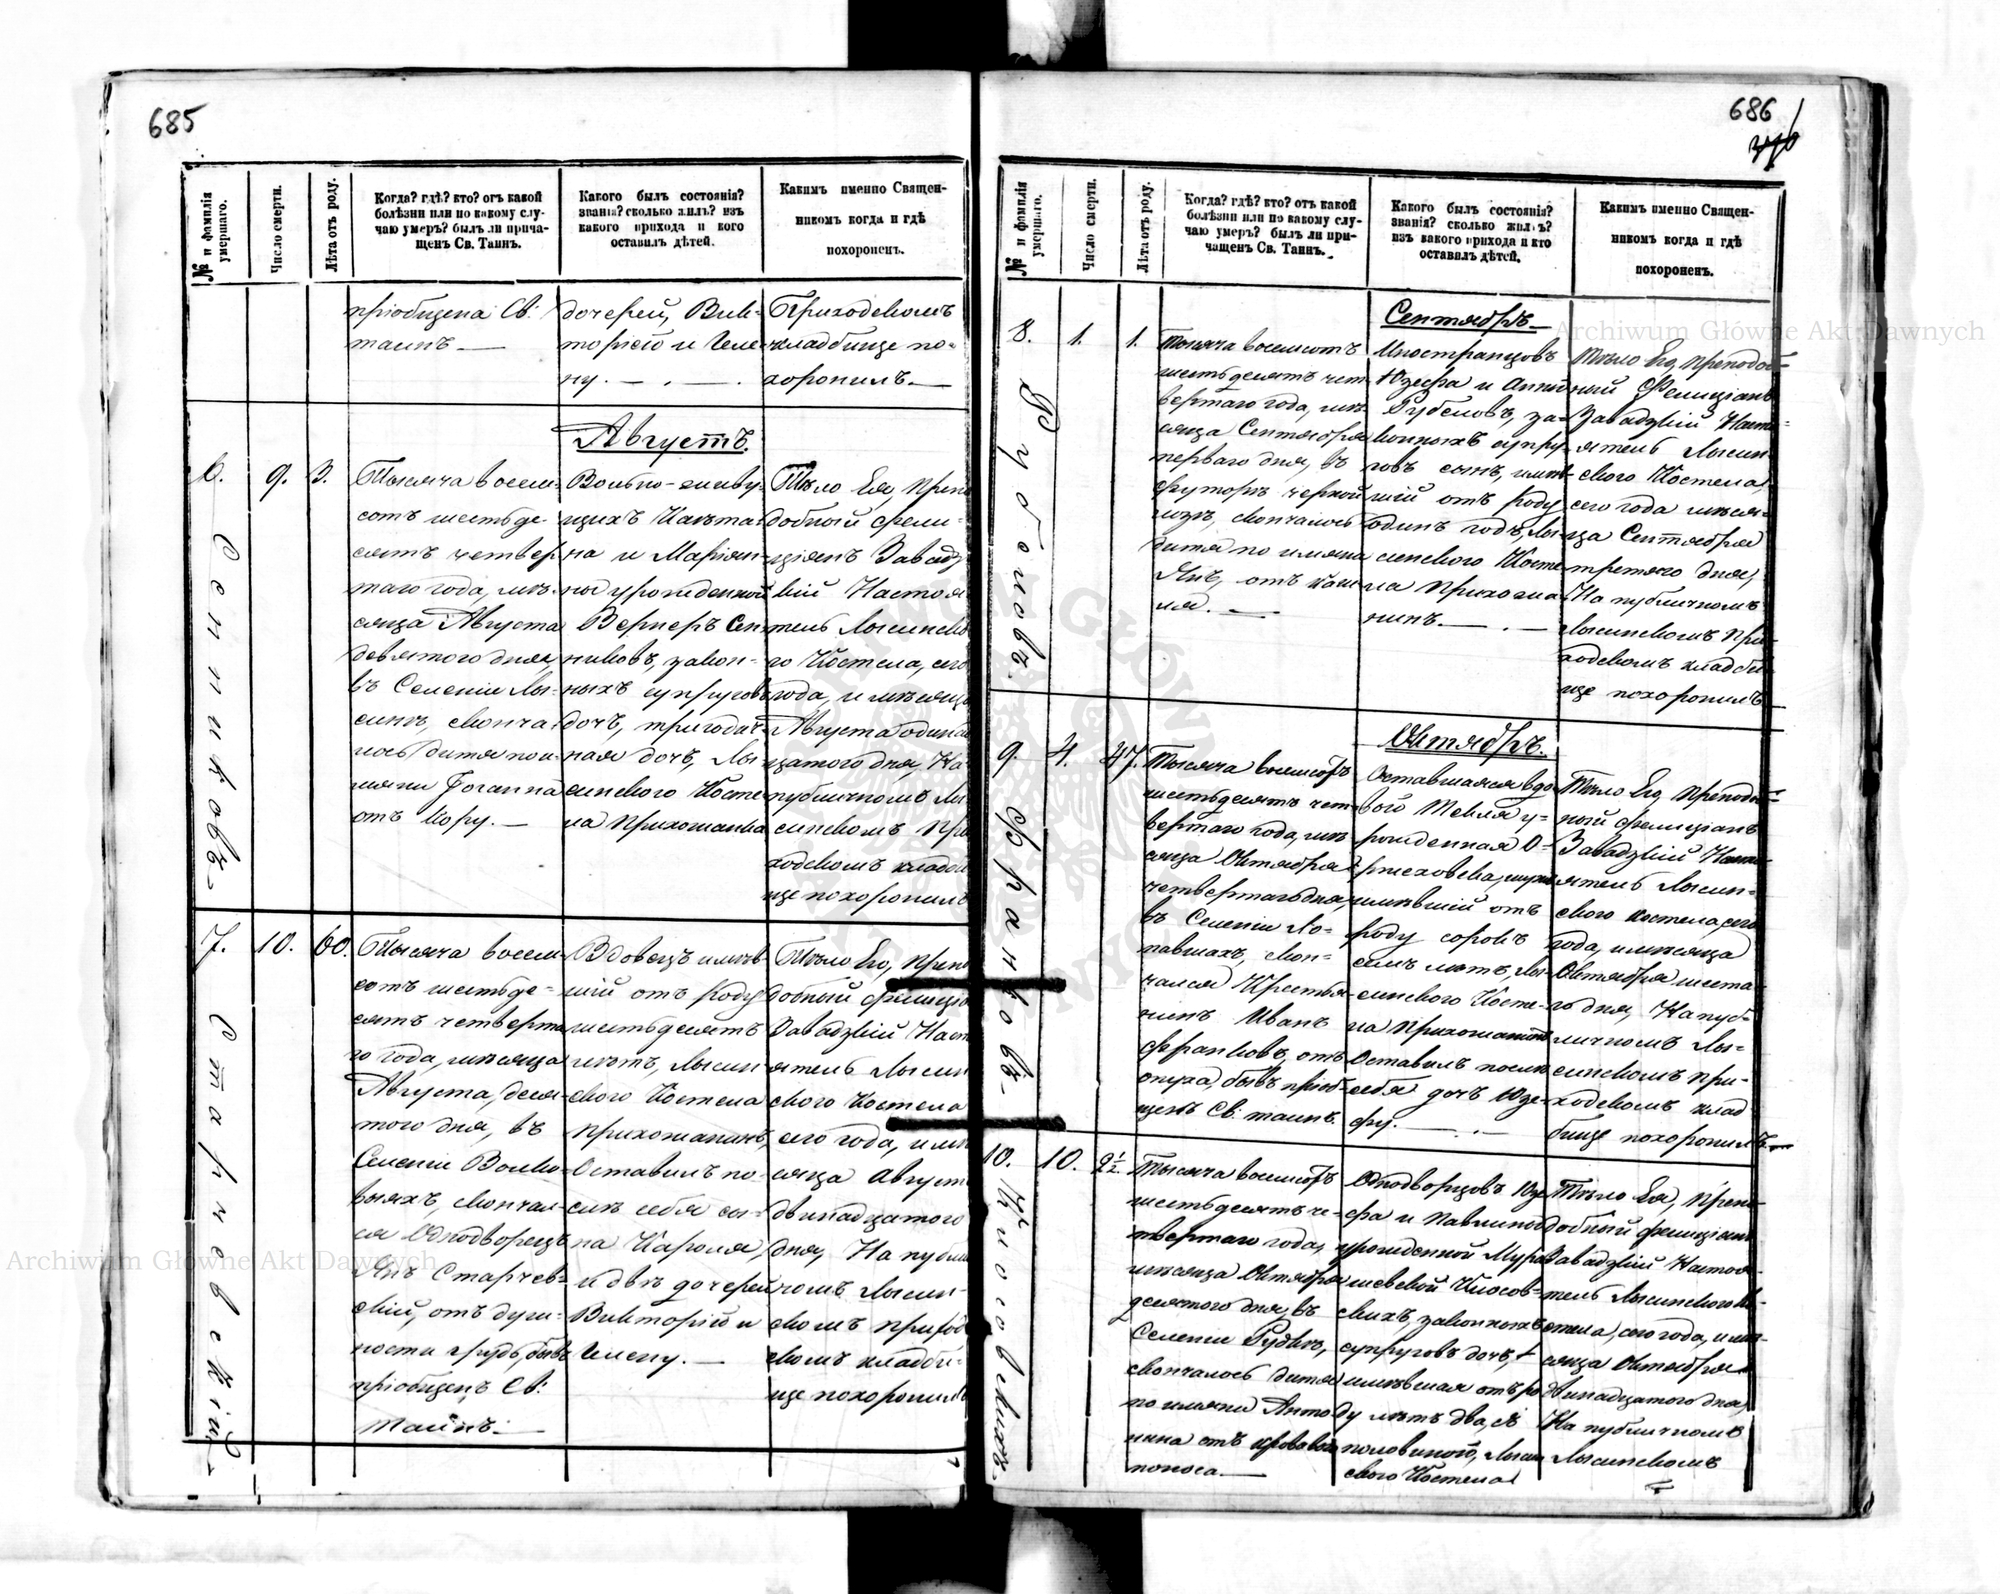 685
№ и фамилія умершаго.
Число смерти.
Лѣта отъ роду.
Когда? гдѣ? кто? отъ какой
болѣзни или по какому слу-
чаю умеръ? былъ ли прича-
щенъ Св. Таинъ.
Какого былъ состоянія?
званія? сколько жилъ? изъ
какого прихода и кого
оставилъ дѣтей.
Какимъ именно Священ-
никомъ когда и гдѣ
похороненъ.
пріобщена Св:
таинъ —
дочерей, Вик-
торію и Геле-
ну. — . — .
Приходскомъ
кладбище по-
хоронилъ. —
Августъ.
6.
Сенниковъ.
9.
3.
Тысяча восем-
сотъ шестьде-
сятъ четвер
таго года, мѣ-
сяца Августа
девятого дня,
въ Селеніи Лы-
синѣ, сконча-
лось дитя по и-
мяни Іоганна
отъ кору. —
Вольно-живу-
щихъ Каэта-
на и Маріан-
ны урожденной
Вернеръ Сен
никовъ, закон-
ныхъ супруговъ
дочъ, тригодич-
ная дочъ, Лы-
синского Косте
ла Прихожанка
Тѣло Ея, Препо
добный Фели-
ціянъ Завадз
кій Настоя
тель Лысинско
го Костела, сего
года, и мѣсяца
Августа одинна
цатого дня, На
публичномъ Лы
синскомъ При
ходскомъ кладби
ще похоронилъ
7.
Старчевскій —
10.
60.
Тысяча восем-
сотъ шестьде-
сятъ четверта
го года, мѣсяца
Августа, деся-
того дня, въ
Селеніи Волко-
выяхъ, скончал-
ся Однодворецъ
Янъ Старчев-
скій, отъ душ-
ности грудь, бывъ
пріобщенъ Св:
Таинъ. —
Вдовецъ имѣв-
шій отъ Роду
шестьдесятъ
лѣтъ, Лысин-
ского Костела
прихожанинъ,
Оставилъ по-
слѣ себя сы-
на Кароля,
и двѣ дочери
Викторію и
Гелену. —
Тѣло Его, Препо
добный Фелиціа
Завадзкій Наст
ятель Лысин
ского Костела
сего года, и мѣ
сяца Август
двѣнадцатого
дня, На публи
чномъ Лысин-
скомъ приход
скомъ кладби-
ще похоронилъ
686
№ и фамилія умершаго.
Число смерти.
Лѣта отъ роду.
Когда? гдѣ? кто? отъ какой
болѣзни или по какому слу-
чаю умеръ? былъ ли при-
чащенъ Св. Таинъ.
Какого былъ состоянія?
званія? сколько жилъ?
изъ какого прихода и кто
оставилъ дѣтей.
Какимъ именно Священ-
никомъ когда и гдѣ
похороненъ.
Сентябръ.
8.
Рубеловъ.
1.
1.
Тысяча восемсотъ
шестьдесятъ чет
вертаго года, мѣ-
сяца Сентября
перваго дня, въ
футорѣ черной
лозѣ, скончалось
дитя по имяни
Янъ, отъ каш
ля. —
Иностранцовъ
Юзефа и Анны
Рубеловъ, за-
конныхъ супру-
говъ сынъ, имѣв-
шій отъ Роду
одинъ годъ, Лы-
синского Косте
ла Прихожа
нинъ. — . —
Тѣло Его, преподоб-
ный Фелиціянъ
Завадзкій Насто-
ятель Лысин-
ского Костела,
сего года мѣся-
ца Сентября
третяго дня,
На публичномъ
Лысинскомъ При-
ходскомъ кладби-
ще похоронилъ
Октябръ.
9.
Франковъ —
4.
47.
Тысяча восемсотъ
шестьдесятъ чет-
вертаго года, мѣ-
сяца Октября
четвертаго дня,
въ Селеніи Ло-
павшахъ, скон-
чался Крестья-
нинъ Иванъ
Франковъ, отъ
опуха, бывъ пріоб-
щенъ Св: таинъ.
Оставшаяся вдо-
вою Текля у-
рожденная О-
ржеховска, мужъ
имѣвшій отъ
Роду сорокъ
семъ лѣтъ, Лы-
синского Косте-
ла Прихожанинъ
Оставилъ послѣ
себя дочъ Юзе-
фу. — . —
Тѣло Его, Преподоб-
ный Фелиціянъ
Завадзкій Насто-
ятель Лысин-
ского костела, сего
года, и мѣсяца
Октября шеста-
го дня, На пуб-
личномъ Лы-
синскомъ При-
ходскомъ клад
бище похоронилъ. —
10.
10.
2 1/2.
Тысяча восемсотъ
шестьдесятъ че-
твертаго года,
мѣсяца Октября
десятого дня, въ
Селеніи Рудкѣ,
скончалось дитя
по имяни Анто
нина отъ кроваваго
поноса. —
Однодворцовъ Юзе
фа и Павлины
урожденной Мура
шевской Кіосов-
скихъ, законныхъ
супруговъ дочъ,
имѣвшая отъ ро
ду лѣтъ два, съ
половиной, Лысин
ского Костела
Тѣло Ея, Препо-
добный Фелиціянъ
Завадзкій Настоя-
тель Лысинского Ко-
стела, сего года, и мѣ-
сяца Октября
двѣнадцатого дня,
На публичномъ
Лысинскомъ
Archiwum Główne Akt Dawnych
Archiwum Główne Akt Dawnych